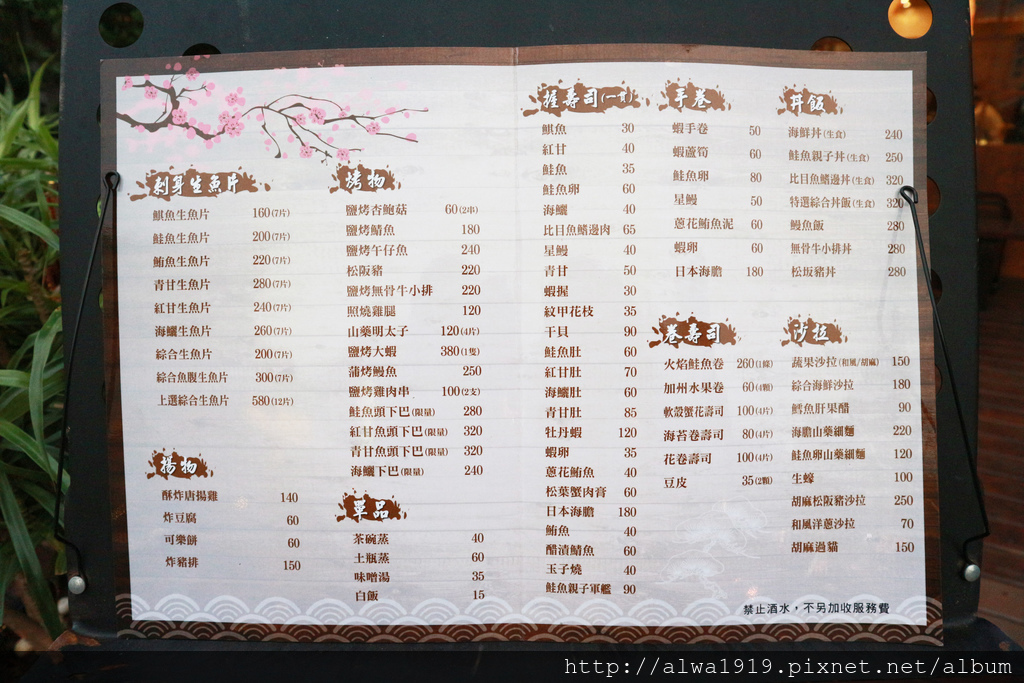 刺身生魚片
旗魚生魚片 160(7片)
鮭魚生魚片 200(7片)
鮪魚生魚片 220(7片)
青甘生魚片 280(7片)
紅甘生魚片 240(7片)
海鱺生魚片 260(7片)
綜合生魚片 200(7片)
綜合魚腹生魚片 300(7片)
上選綜合生魚片 580(12片)
揚物
酥炸唐揚雞 140
炸豆腐 60
可樂餅 60
炸豬排 150
烤物
鹽烤杏鮑菇 60(2串)
鹽烤鯖魚 180
鹽烤午仔魚 240
松阪豬 220
鹽烤無骨牛小排 220
照燒雞腿 120
山藥明太子 120(4片)
鹽烤大蝦 380(1隻)
蒲烤鰻魚 250
鹽烤雞肉串 100(2支)
鮭魚頭下巴(限量) 280
紅甘魚頭下巴(限量) 320
青甘魚頭下巴(限量) 320
海鱺下巴(限量) 240
單品
茶碗蒸 40
土瓶蒸 60
味噌湯 35
白飯 15
握壽司(一貫)
旗魚 30
紅甘 40
鮭魚 35
鮭魚卵 60
海鱺 40
比目魚鰭邊肉 65
星鰻 40
青甘 50
蝦握 30
紋甲花枝 35
干貝 90
鮭魚肚 60
紅甘肚 70
海鱺肚 60
青甘肚 85
牡丹蝦 120
蝦卵 35
蔥花鮪魚 40
松葉蟹肉膏 60
日本海膽 180
鮪魚 40
醋漬鯖魚 60
玉子燒 40
鮭魚親子軍艦 90
手卷
蝦手卷 50
蝦蘆筍 60
鮭魚卵 80
星鰻 50
蔥花鮪魚泥 60
蝦卵 60
日本海膽 180
卷壽司
火焰鮭魚卷 260(1條)
加州水果卷 60(4顆)
軟殼蟹花壽司 100(4片)
海苔卷壽司 80(4片)
花卷壽司 100(4片)
豆皮 35(2顆)
丼飯
海鮮丼(生食) 240
鮭魚親子丼(生食) 250
比目魚鰭邊丼(生食) 320
特選綜合丼飯(生食) 320
鰻魚飯 280
無骨牛小排丼 280
松坂豬丼 280
沙拉
蔬果沙拉(和風/胡麻) 150
綜合海鮮沙拉 180
鱈魚肝果醋 90
海膽山藥細麵 220
鮭魚卵山藥細麵 120
生蠔 100
胡麻松阪豬沙拉 250
和風洋蔥沙拉 70
胡麻過貓 150
禁止酒水，不另加收服務費
http://alwa1919.pixnet.net/album